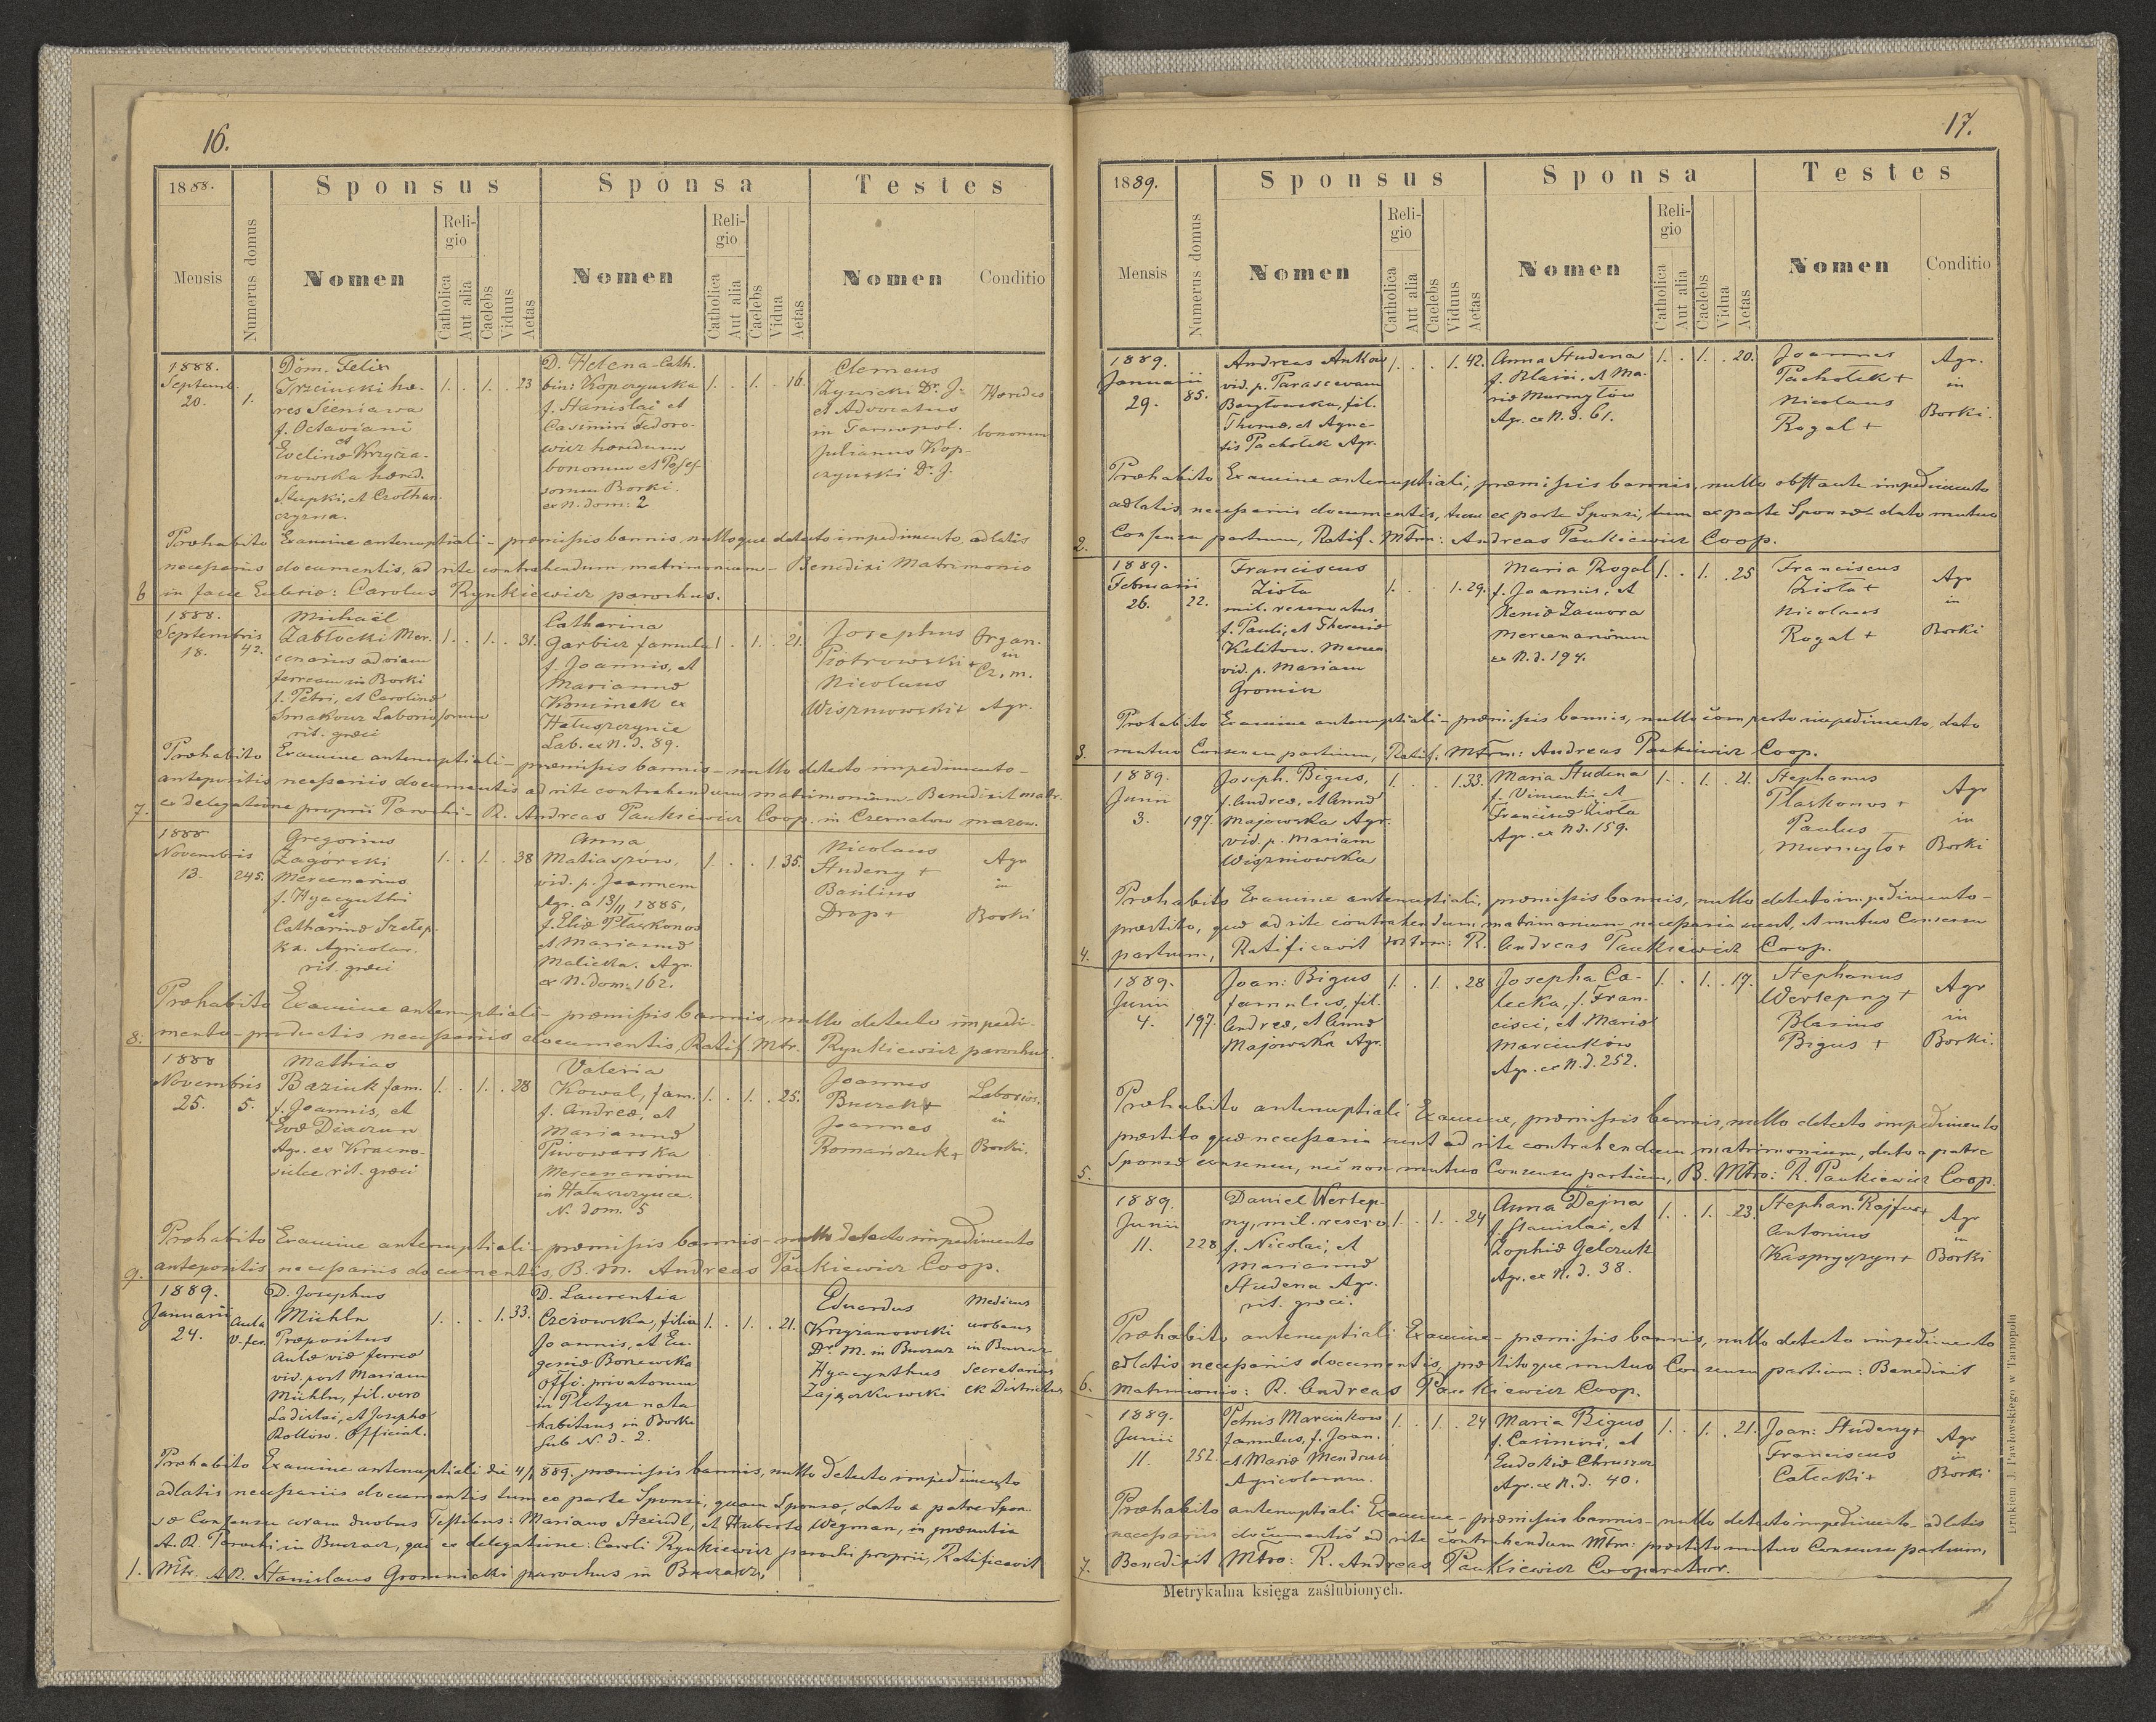 16.
1888.
Sponsus
Sponsa
Testes
Mensis
Numerus domus
Nomen
Religio
Catholica
Aut alia
Caelebs
Viduus
Aetas
Nomen
Religio
Catholica
Aut alia
Caelebs
Vidua
Aetas
Nomen
Conditio
1888.
Septemb.
20.
1.
Dom. Felix
Trzcinski hæ-
res Sieniawa
f. Octaviani
et
Evelinæ Krzyża-
nowska hæred.
Stupki, et Czolhan-
czyzna.
1. . 1. . 23
D. Helena-Cath.
bin: Kopczynska
f. Stanislai et
Casimiri Fedoro-
wicz hæredum
bonorum et Posses-
sorum Borki.
ex N. dom: 2
1. . 1. . 16.
Clemens
Żywicki Dr. J.
et Advocatus
in Tarnopol.
Julianus Kop-
czynski Dr. J.
Hæredes
bonorum
Præhabito Examine antenuptiali - præmissis bannis nulloque detecto impedimento, adlatis
necessariis documentis, ad rite contrahendum matrimonium - Benedixi Matrimonio
6 in facie Eclesiæ: Carolus Rynkiewicz parochus.
1888.
Septembris
18.
42.
Michaël
Zabłocki Mer-
cenarius ad viam
ferream in Borki
f. Petri, et Carolinæ
Smakowz Laboriosorum
rit. græci
1. . 1. . 31.
Catharina
Garbicz famula
f. Joannis, et
Mariannæ
Kominek ex
Hałuszczyńce
Lab. ex N. d. 89.
1. . 1. . 21.
Josephus
Piotrowski +
Nicolaus
Wiszniowski +
Organ.
in
Cz. m.
Agr.
Præhabito Examine antenuptiali - præmissis bannis - nullo detecto impedimento -
antepositis necessariis documentis ad rite contrahendum matrimonium - Benedixit matr.
7. ex delegatione proprii Parochi - R. Andreas Paukiewicz Coop. in Czernelow mazow.
1888
Novembris
13.
245.
Gregorius
Zagórski
Mercenarius
f. Hyacynthi
et
Catharinæ Szetep-
ka. Agricolar.
rit. græci
1. . 1. . 38
Anna
Matiaszów,
vid. p. Joannem
Agr. a 13/11 1885,
f. Eliæ Płaskonos
et Mariannæ
Malicka. Agr.
ex N. dom: 162.
1. . . 1. 35.
Nicolaus
Studeny +
Basilius
Drop +
Agr
in
Borki
Præhabito Examine antenuptiali - præmissis bannis, nullo detecto impedi-
8. mento - productis necessariis documentis Ratif. Mtr. Rynkiewicz parochus.
1888
Novembris
25.
5.
Mathias
Baziuk fam.
f. Joannis, et
Evæ Diaczun
Agr. ex Krasno-
sielce rit. græci
1. . 1. . 28
Valeria
Kowal, fam.
f. Andreæ, et
Mariannæ
Piwowarska
Mercenariorum
in Hałuszczyńce.
N. dom. 5
1. . 1. . 25.
Joannes
Buczek +
Joannes
Romańczuk +
Laborios.
in
Borki.
Præhabito Examine antenuptiali - præmissis bannis - nullo detecto impedimento
9. antepositis necessariis documentis, B. M. Andreas Paukiewicz Coop.
1889.
Januarii
24.
Aula
v. fer.
D. Josephus
Mühln
Præpositus
Aulæ viæ ferreæ
vid. post Mariam
Mühln, fil. vero
Ladislai, et Josephæ
Rollów. Official.
1. . . 1. 33.
D. Laurentia
Czeżowska, filia
Joannis, et Eu-
geniæ Borzewska
Offic. privatorum
in Płotycz nata
habitans in Borki
sub N. d. 2.
1. . 1. . 21.
Eduardus
Krzyżanowski
Dr. M. in Buczacz
Hyacynthus
Zajączkowski
Medicus
urbanus
in Buczacz
Secretarius
CK Districtus
Præhabito Examine antenuptiali die 4/1 889. præmissis bannis, nullo detecto impedimento
adlatis necessariis documentis tum ex parte Sponsi, quam Sponsæ, dato a patre Spon-
sæ Consensu coram duobus Testibus: Mariano Steindl, et Huberto Wegman, in præsentia
A. R. Parochi in Buczacz, qui ex delegatione: Caroli Rynkiewicz parochi proprii, Ratificavit
1. Mtr. A R. Stanislaus Gromnicki parochus in Buczacz.
17.
1889.
Sponsus
Sponsa
Testes
Mensis
Numerus domus
Nomen
Religio
Catholica
Aut alia
Caelebs
Viduus
Aetas
Nomen
Religio
Catholica
Aut alia
Caelebs
Vidua
Aetas
Nomen
Conditio
1889.
Januarii
29.
85.
Andreas Ankow
vid. p. Parascevam
Bazytowska, fil.
Thomæ, et Agne-
tis Pachołek Agr.
1. . . 1. 42.
Anna Studena
f. Blasii, et Ma-
riæ Murmyłów
Agr. ex N. d. 61.
1. . 1. . 20.
Joannes
Pachołek +
Nicolaus
Rogal +
Agr.
in
Borki.
Præhabito Examine antenuptiali, præmissis bannis, nullo obstante impedimento
adlatis necessariis documentis, tum ex parte Sponsi, tum ex parte Sponsæ - dato mutuo
2. Consensu partium, Ratif. Mtrm: Andreas Paukiewicz Coop.
1889.
Februarii
26.
22.
Franciscus
Zioła
mil. reservatus
f. Pauli, et Theresiæ
Kalitow. Mercen
vid. p. Mariam
Gromisz
1. . . 1. 29.
Maria Rogal
f. Joannis, et
Xeniæ Zawora
Mercenariorum
ex N. d. 194.
1. . 1. . 25
Franciscus
Zioła +
Nicolaus
Rogal +
Agr
in
Borki
Præhabito Examine antenuptiali - præmissis bannis, nullo comperto impedimento, dato
3. mutuo Consensu partium, Ratif: Mtrm: Andreas Paukiewicz Coop.
1889.
Junii
3.
197.
Joseph. Bigus,
f. Andreæ, et Annæ
Majowska Agr.
vid. p. Mariam
Wiszniowska
1. . . 1. 33.
Maria Studena
f. Vincentii et
Franciscæ Zioła
Agr. ex N d. 159.
1. . 1. . 21.
Stephanus
Płaskonos +
Paulus
Murmyło +
Agr
in
Borki
Præhabito Examine antenuptiali, præmissis bannis, nullo detecto impedimento -
præstito, quæ ad rite contrahendum matrimonium necessaria sunt, et mutuo Consensu
4. partium, Ratificavit Mtrm: R. Andreas Paukiewicz Coop.
1889.
Junii
4.
197.
Joan: Bigus
famulus, fil.
Andreæ, et Annæ
Majowska Agr.
1. . 1. . 28
Josepha Ca-
łecka, f. Fran-
cisci, et Mariæ
Marcinków
Agr. ex N. d. 252.
1. . 1. . 17.
Stephanus
Wertepny +
Blasius
Bigus +
Agr
in
Borki.
Præhabito antenuptiali Examine, præmissis bannis, nullo detecto impedimento
præstito quæ necessaria sunt ad rite contrahendum matrimonium, dato a patre
5. Sponsæ consensu, nec non mutuo Consensu partium, B. Mtro: R. Paukiewicz Coop.
1889.
Junii
11.
228
Daniel Wertep-
ny, mil. reserv.
f. Nicolai, et
Mariannæ
Studena Agr.
rit. græci.
1. . 1. . 24
Anna Dejna
f. Stanislai, et
Zophiæ Gelczuk
Agr. ex N. d. 38.
1. . 1. . 23.
Stephan. Rajfur +
Antonius
Kasprzyszyn +
Agr
in
Borki
Præhabito antenuptiali Examine - præmissis bannis, nullo detecto impedimento
adlatis necessariis documentis, præstitoque mutuo Consensu partium: Benedixit
6. Matrimonio: R. Andreas Paukiewicz Coop.
1889.
Junii
11.
252.
Petrus Marcinkow
famulus, f. Joan.
et Mariæ Mendruń
Agricolarum.
1. . 1. . 24
Maria Bigus
f. Casimiri, et
Eudokiæ Chruszcz
Agr. ex N. d. 40.
1. . 1. . 21.
Joan: Studeny +
Franciscus
Całecki +
Agr
in
Borki
Præhabito antenuptiali Examine - præmissis bannis - nullo detecto impedimento - adlatis
necessariis documentis ad rite contrahendum Mtrm: præstito mutuo Consensu partium,
7. Benedixit Mtro: R. Andreas Paukiewicz Cooperator.
Metrykalna księga zaślubionych.
Drukiem J. Pawłowskiego w Tarnopolu